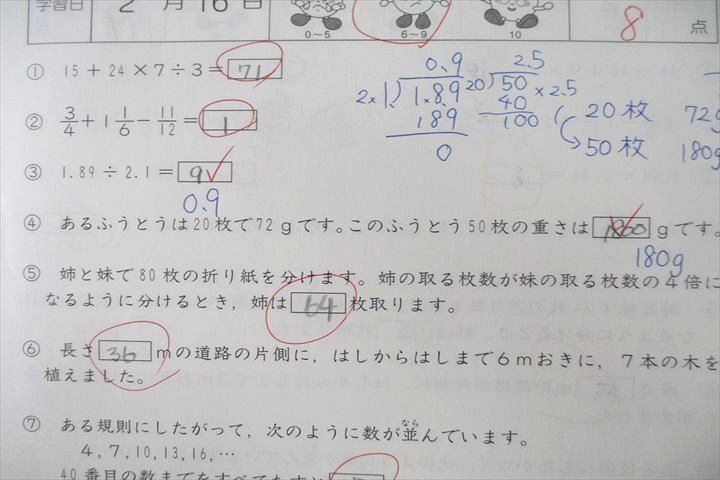 学習日 2 月 16 日 0～5 6～9 10 8 点
① 15＋24×7÷3＝71
② 3/4＋1 1/6－11/12＝1
③ 1.89÷2.1＝9
0.9
0.9
2.1) 1.89
189
0
2.5
20) 50
40
100
×2.5
20枚 72g
50枚 180g
④ あるふうとうは20枚で72gです。このふうとう50枚の重さは1800gです。
180g
⑤ 姉と妹で80枚の折り紙を分けます。姉の取る枚数が妹の取る枚数の4倍に
なるように分けるとき，姉は64枚取ります。
⑥ 長さ36mの道路の片側に，はしからはしまで6mおきに，7本の木を
植えました。
⑦ ある規則にしたがって，次のように数が並んでいます。
なら
4，7，10，13，16，…
40番目の数までをすべてたすと